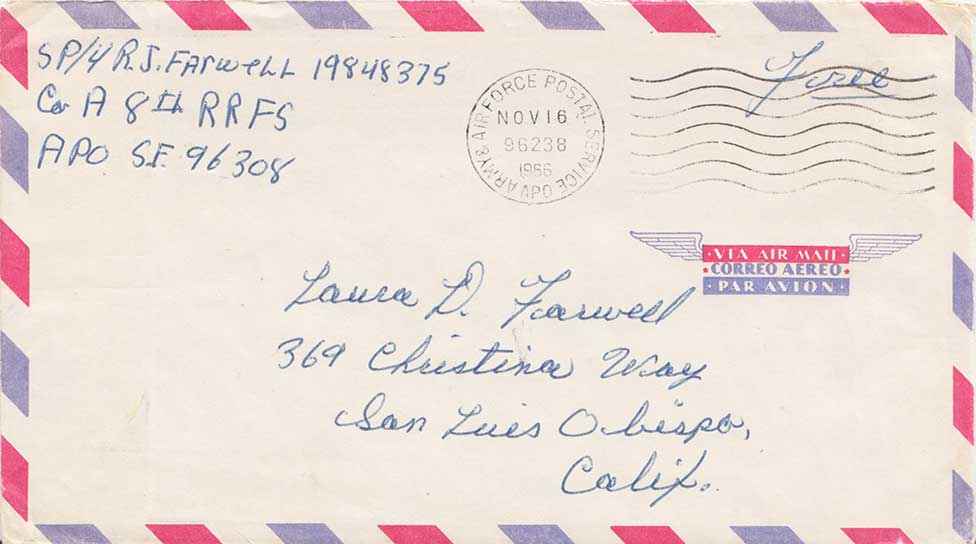 SP/4 R.J. FARWELL 19848375
Co A 8th RRFS
APO S.F. 96308
ARMY & AIR FORCE POSTAL SERVICE
NOV 16
96238
1966
APO
Free
VIA AIR MAIL
CORREO AEREO
PAR AVION
Laura D. Farwell
369 Christina Way
San Luis Obispo,
Calif.